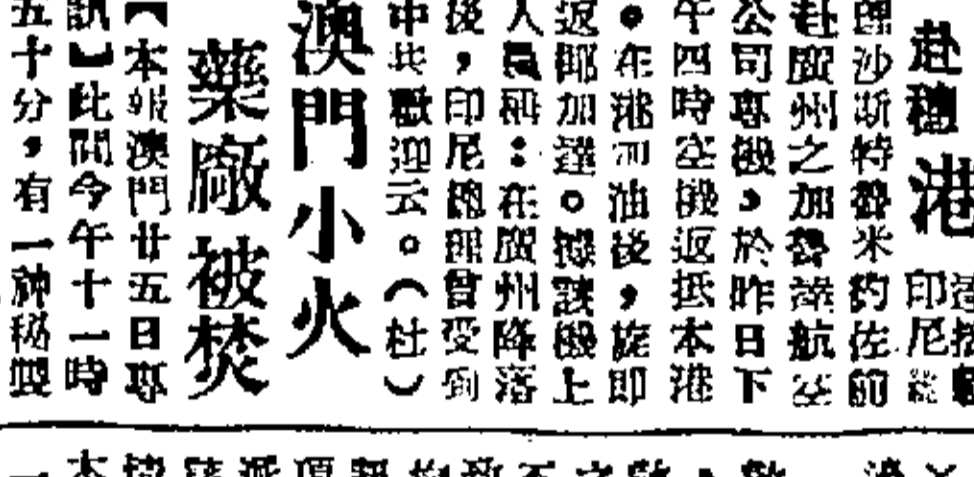 赴穗
港
印尼總
理沙斯特魯米約佐前
赴廣州之加魯達航空
公司專機，於昨日下
午四時空機返抵本港
。在港加油後，旋即
返耶加達。據該機上
人員稱：在廣州降落
後，印尼總理曾受到
中共歡迎云。（杜）
澳門小火
藥廠被焚
【本報澳門廿五日專
訊】此間今午十一時
五十分，有一神秘製